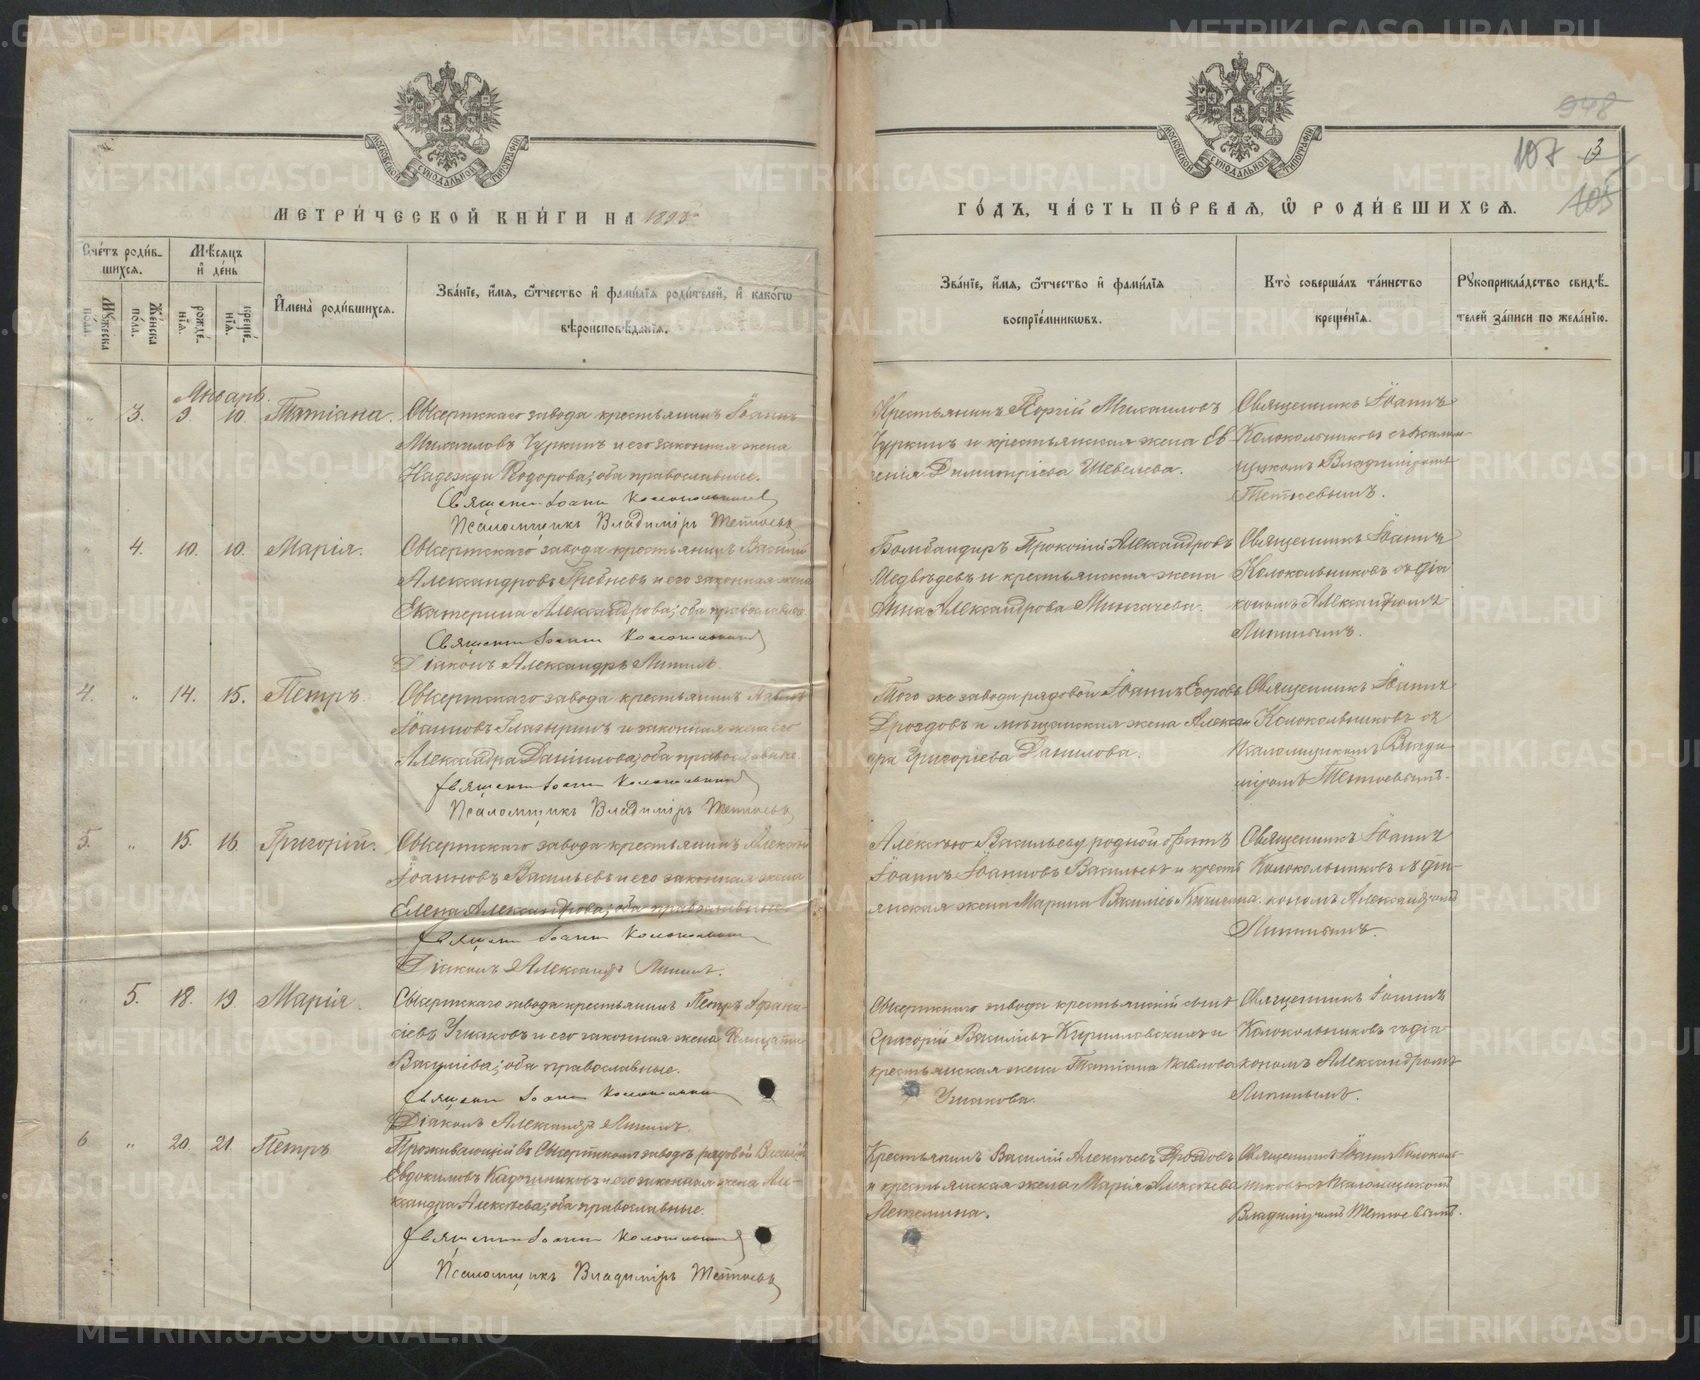 948
107
3
105
МОСКОВСКОЙ СѴНОДАЛЬНОЙ ТИПОГРАФІИ
МОСКОВСКОЙ СѴНОДАЛЬНОЙ ТИПОГРАФІИ
МЕТРИ́ЧЕСКОЙ КНИ́ГИ НА 1893
ГО́ДЪ, ЧА́СТЬ ПЕ́РВАЯ, Ѽ РОДИ́ВШИХСЯ.
Сче́тъ роди́в-
шихся.
Мꙋжеска пола.
Же́нска пола.
Мѣ́сяцъ
и҆ де́нь
рожде́-
нїя.
креще́-
нїя.
И҆мена̀ роди́вшихся.
Зва́нїе, и҆́мя, ѻ҆́тчество и҆ фами́лїя роди́телей, и҆ како́гѡ
вѣроисповѣ́данїя.
Зва́нїе, и҆́мя, ѻ҆́тчество и҆ фами́лїя
воспрїе́мниковъ.
Кто̀ соверша́лъ та́инство
креще́нїя.
Рꙋкоприкла́дство свидѣ́-
телей за́писи по жела́нїю.
Январь.
„ 3. 9. 10. Татіана. Сысертскаго завода крестьянинъ Іоаннъ
Михаиловъ Чуркинъ и его законная жена
Надежда Ѳеодорова; оба православные.
Священ. Іоаннъ Колокольниковъ
Псаломщикъ Владиміръ Тетюевъ
Крестьянинъ Георгій Михаиловъ
Чуркинъ и крестьянская жена Ев
генія Димитріева Шевелева.
Священникъ Іоаннъ
Колокольниковъ съ псалом-
щикомъ Владиміромъ
Тетюевымъ.
„ 4. 10. 10. Марія. Сысертскаго завода крестьянинъ Василій
Александровъ Гребневъ и его законная жена
Екатерина Александрова; оба православные
Священ. Іоаннъ Колокольниковъ
Діаконъ Александръ
Бомбандиръ Прокопій Александровъ
Медвѣдевъ и крестьянская жена
Анна Александрова Мингачева.
Священникъ Іоаннъ
Колокольниковъ съ діа
кономъ Александромъ
4. „ 14. 15. Петръ. Сысертскаго завода крестьянинъ Павелъ
Іоанновъ Глазыринъ и законная жена его
Александра Даніилова; оба православные.
Священ. Іоаннъ Колокольниковъ
Псаломщикъ Владиміръ Тетюевъ
Того же завода рядовой Іоаннъ Егоровъ
Дроздовъ и мѣщанская жена Алексан
дра Григоріева Данилова.
Священникъ Іоаннъ
Колокольниковъ съ
псаломщикомъ Влади
міромъ Тетюевымъ.
5. „ 15. 16. Григорій. Сысертскаго завода крестьянинъ Алексѣй
Іоанновъ Васильевъ и его законная жена
Елена Александрова; оба православные.
Священ. Іоаннъ Колокольниковъ
Діаконъ Александръ
Алексѣю Васильеву родной братъ
Іоаннъ Іоанновъ Васильевъ и кресть
янская жена Марина Василіева
Священникъ Іоаннъ
Колокольниковъ съ діа-
кономъ Александромъ
„ 5. 18. 19. Марія. Сысертскаго завода крестьянинъ Петръ Афана-
сіевъ Ушаковъ и его законная жена
Василіева; оба православные.
Священ. Іоаннъ Колокольниковъ
Діаконъ Александръ
Сысертскаго завода крестьянскій сынъ
Григорій Василіевъ Кирилловскихъ и
крестьянская жена Татіана Павлова
Ушакова.
Священникъ Іоаннъ
Колокольниковъ съ діа
кономъ Александромъ
6 „ 20. 21. Петръ Проживающій въ Сысертскомъ заводѣ рядовой Василій
Евдокимовъ Кадочниковъ и его законная жена Але-
ксандра Алексѣева; оба православные.
Священникъ Іоаннъ Колокольниковъ
Псаломщикъ Владиміръ Тетюевъ
Крестьянинъ Василій Алексѣевъ Дроздовъ
и крестьянская жена Марія Алексѣева
Летемина.
Священникъ Іоаннъ Колоколь-
никовъ съ псаломщикомъ
Владиміромъ Тетюевымъ.
METRIKI.GASO-URAL.RU